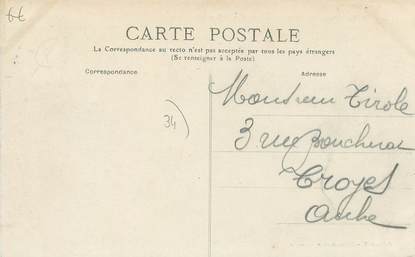 66
CARTE POSTALE
La Correspondance au recto n'est pas acceptée par tous les pays étrangers
(Se renseigner à la Poste)
Correspondance
Adresse
Monsieur Tirole
3 rue Boucherat
34
Troyes
Aube